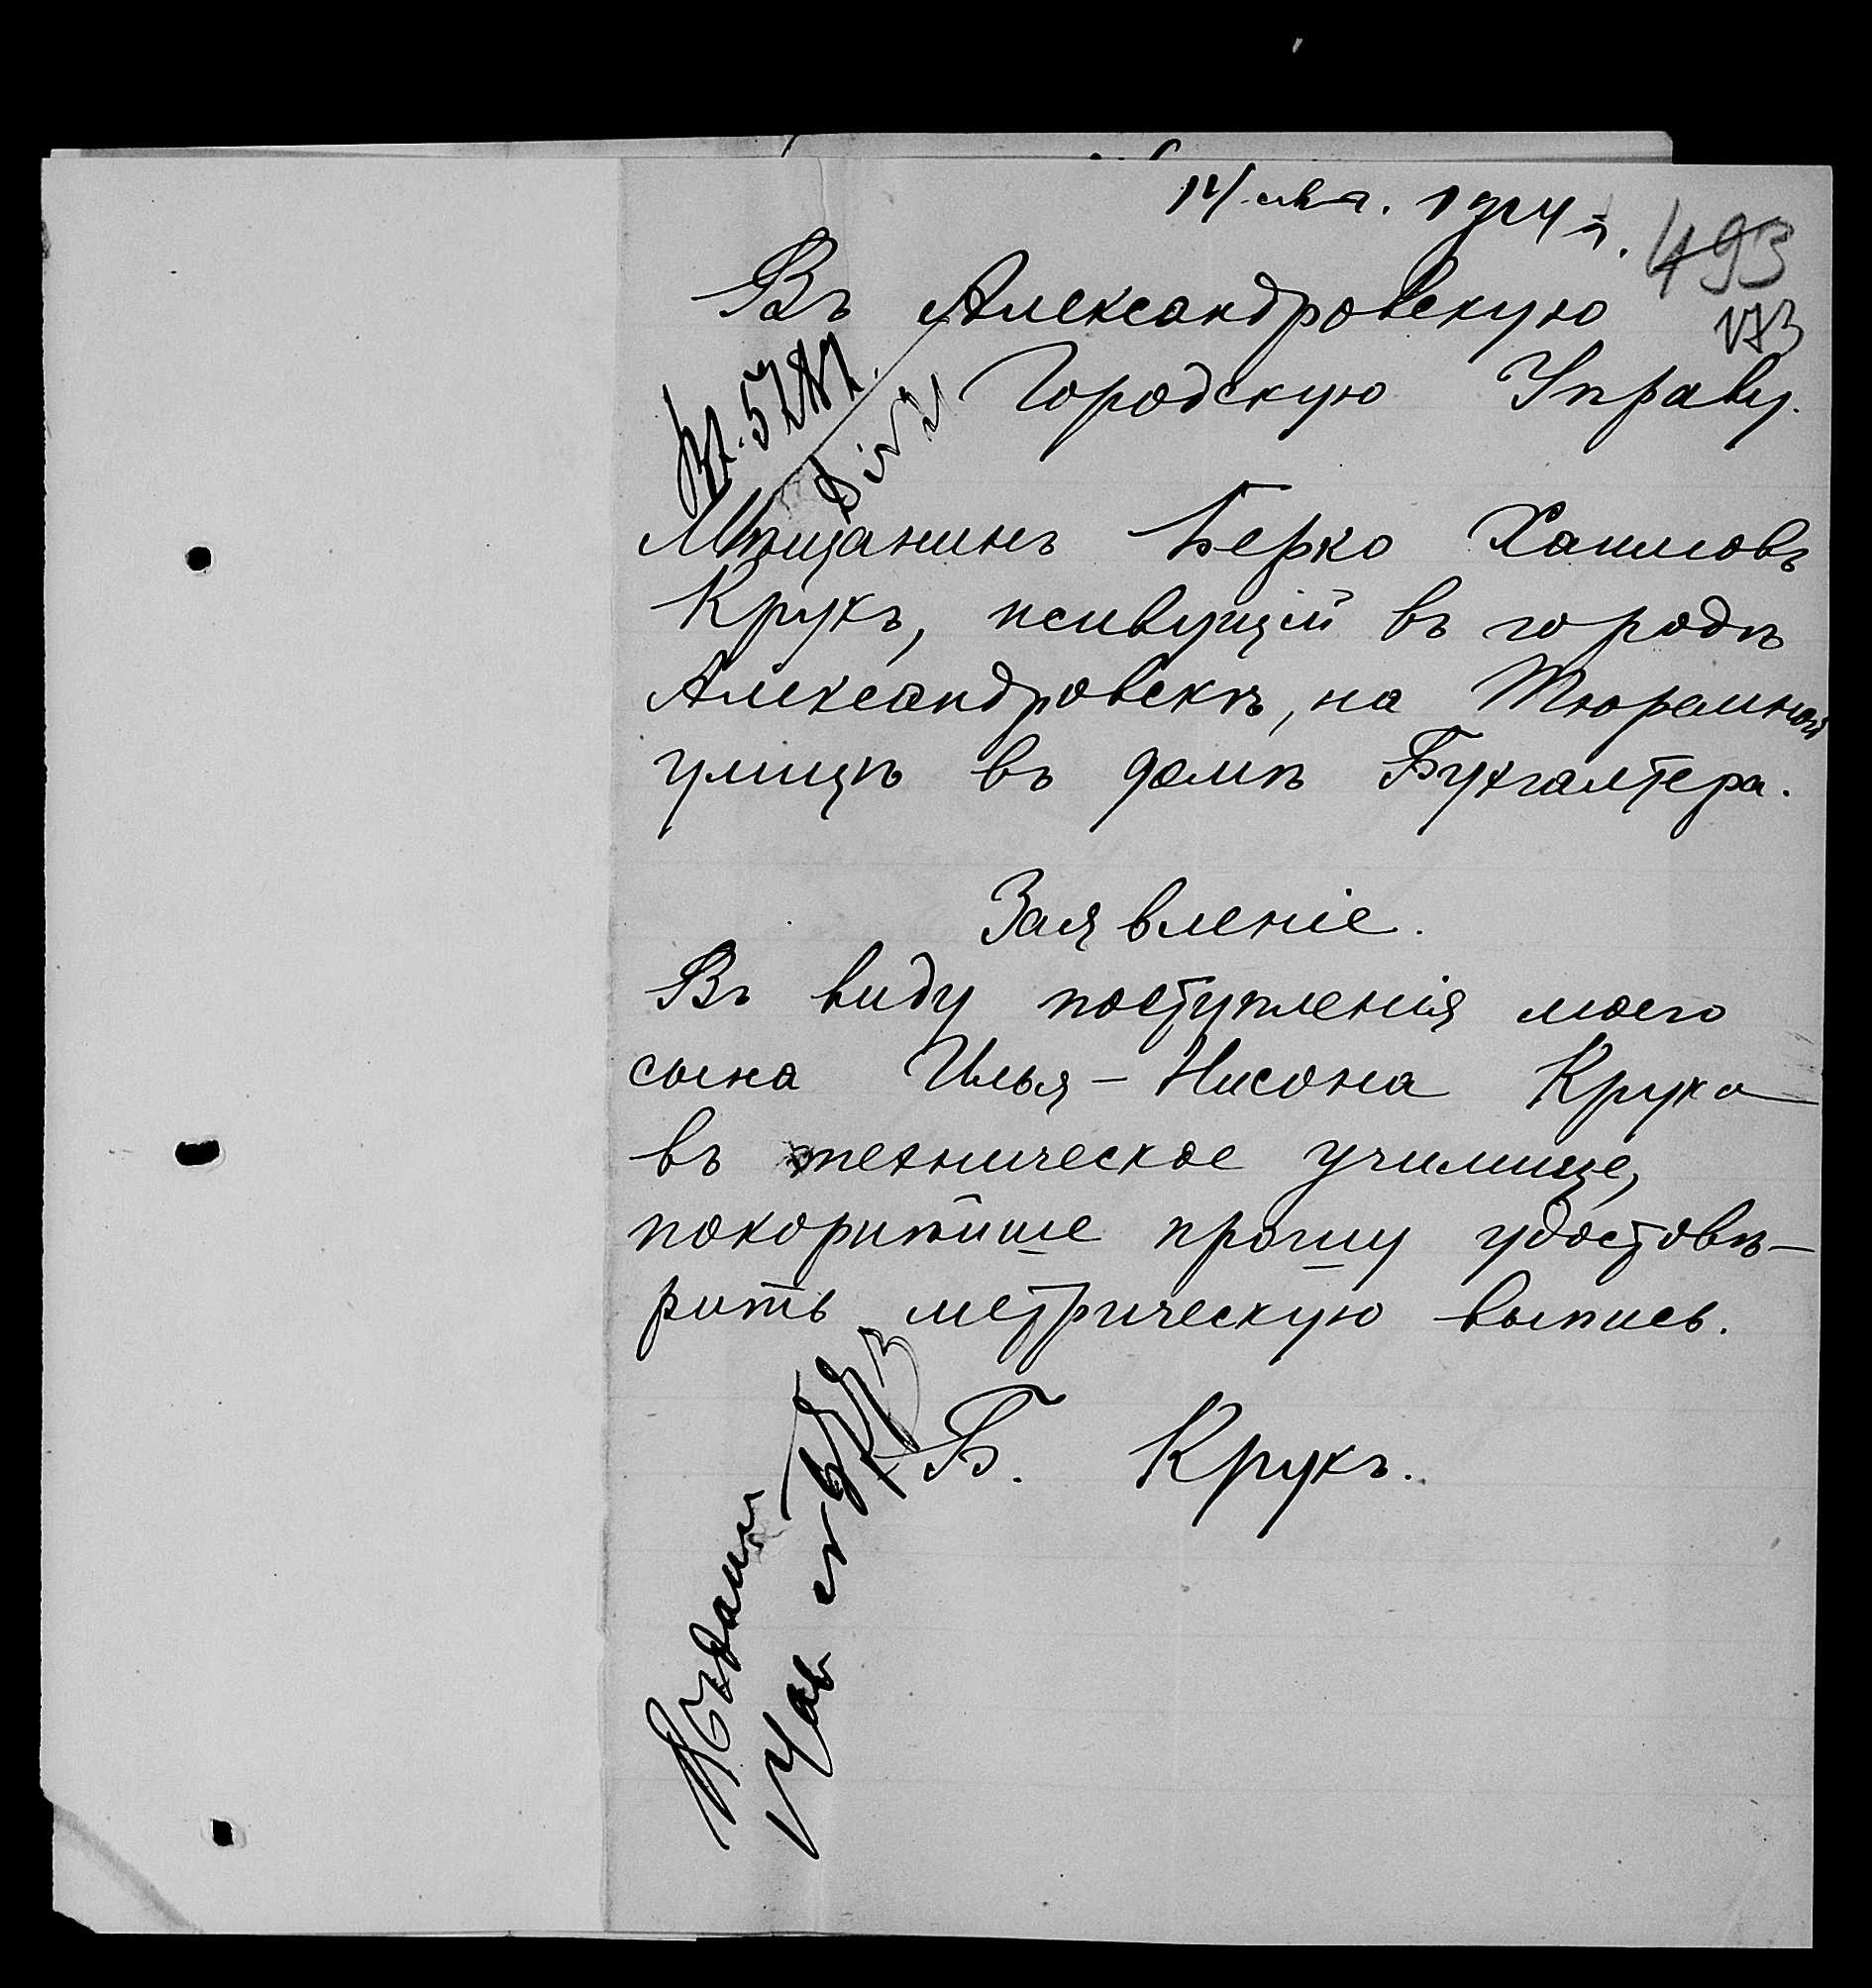 1914 г.
493
173
Въ Александровскую
Городскую Управу.
Мѣщанинъ Берко Хаимовъ
Крукъ, живущій въ городѣ
Александровскѣ, на Тюремной
улицѣ въ домѣ Бухгалтера.
Заявленіе.
Въ виду поступленія моего
сына Илья-Нисона Крука
въ техническое училище,
покорнѣйше прошу удостовѣ-
рить метрическую выпись.
Б. Крукъ.